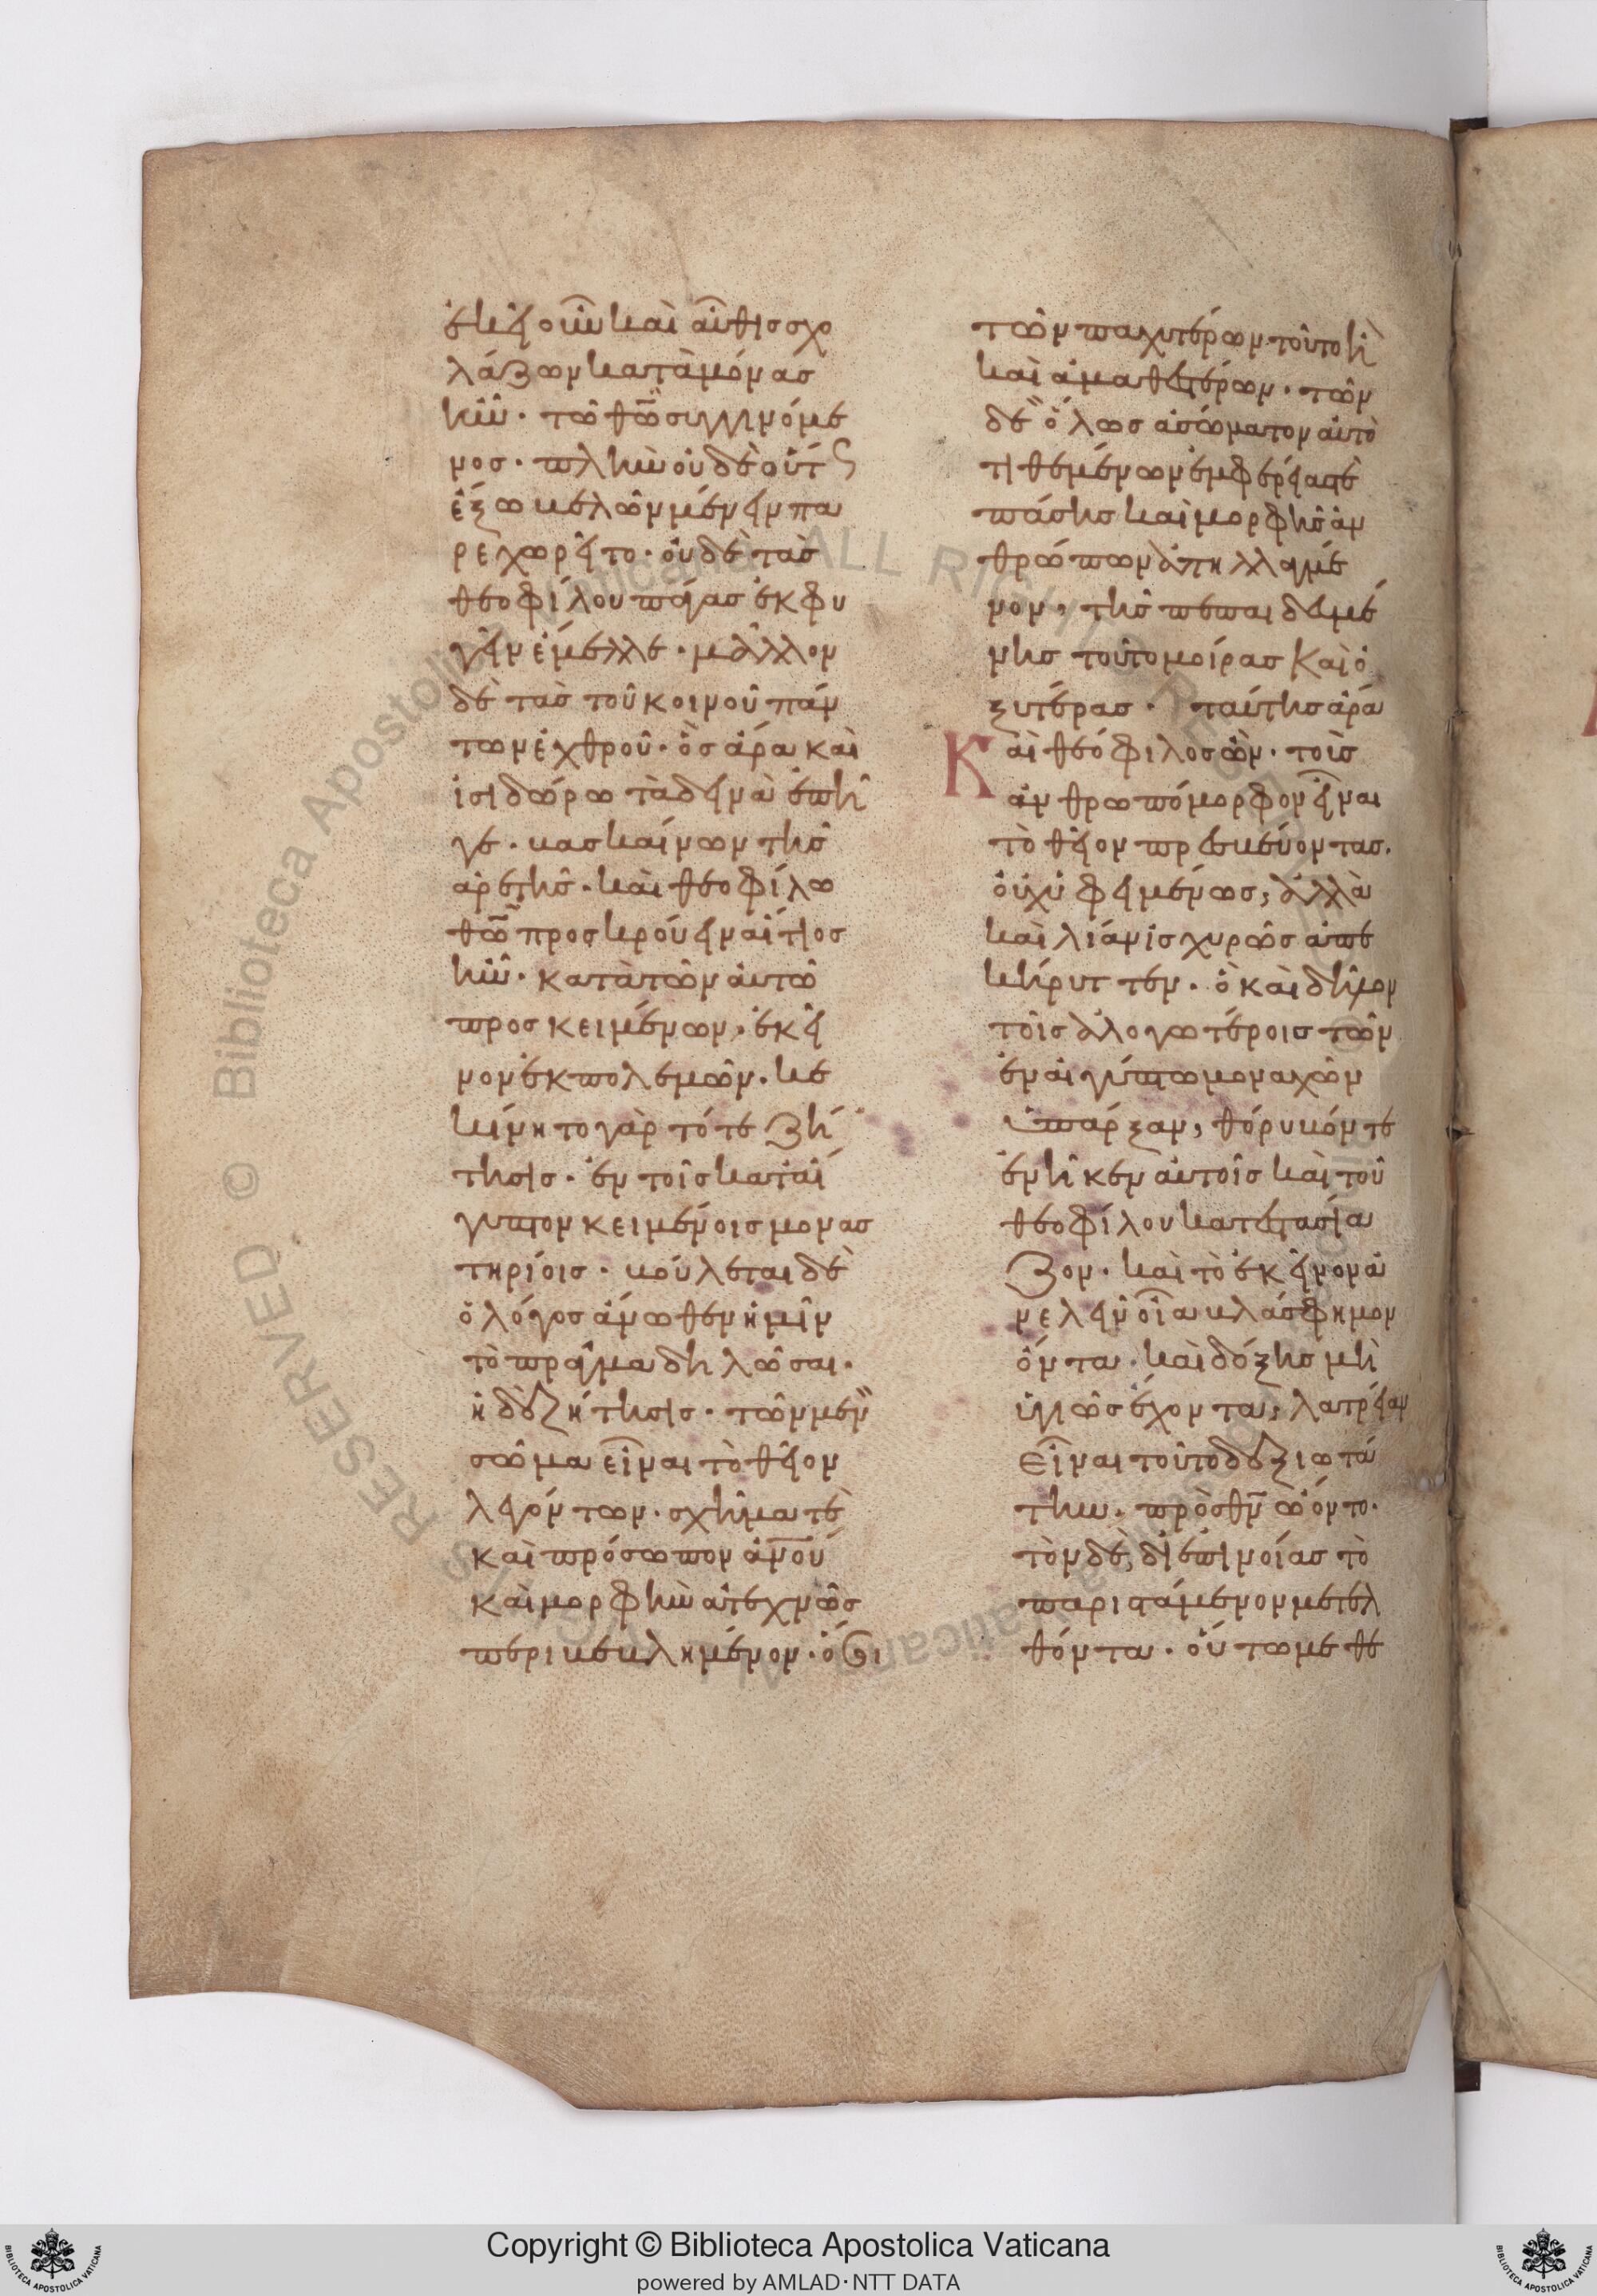 ἐκεῖ οὖν καὶ αὖθις σχο
λάζων κατὰ μόνας
ἦν· τῶ θῶ συγγινόμε
νος· πλὴν οὐδὲ οὕτς
ἔξω βελῶν μένειν πα
ρεχωρεῖτο· οὐδὲ τὰς
θεοφίλου πάγας ἐκφυ
γεῖν ἔμελλε· μᾶλλον
δὲ τὰς τοῦ κοινοῦ πάν
των ἐχθροῦ· ὃς ἄρα καὶ
ἰσιδώρω τὰ δεινὰ ἐπῆ
γε· βασκαίνων τῆς
ἀρετῆς· καὶ θεοφίλω
θῶ προσκρούειν αἴτιος
ἦν· κατὰ τῶν αὐτῶ
προσκειμένων· ἐκεῖ
νον ἐκπολεμῶν· κε
κίνητο γὰρ τότε ζή
τησις· ἐν τοῖς κατ' αἴ
γυπτον κειμένοις μονασ
τηρίοις· βούλεται δὲ
ὁ λόγος ἄνωθεν ἡμῖν
τὸ πρᾶγμα δηλῶσαι·
ἡ δὲ ζήτησις· τῶν μὲν
σῶμα εἶναι τὸ θεῖον
λεγόντων· σχῆμα τὲ
καὶ πρόσωπον ἀνου
καὶ μορφὴν ἀτεχνῶς
περιβεβλημένον· ὅσοι
τῶν παχυτέρων τοῦτο ἢ
καὶ ἀμαθεστέρων· τῶν
δὲ ὅλως ἀσώματον αὐτὸ
τιθεμένων ἐμφερείας τὲ
πάσης καὶ μορφῆς ἀν
θρώπων ἀπηλλαγμέ
νον, τῆς πεπαιδευμέ
νης τοῦτο μοίρας καὶ ὀ
ξυτέρας· ταύτης ἄρα
Καὶ θεόφιλος ὢν· τοῖς
ἀνθρωπόμορφον εἶναι
τὸ θεῖον πρεσβεύοντας.
οὐχ ὑφειμένως, ἀλλὰ
καὶ λίαν ἰσχυρῶς ἀπε
κήρυττεν· ὃ καὶ δῆμον
τοῖς ἀλογωτέροις τῶν
ἐν αἰγύπτω μοναχῶν
ὑπάρξαν, θόρυβόν τε
ἐνῆκεν αὐτοῖς καὶ τοῦ
θεοφίλου καταστασιά
ζον· καὶ τὸ ἐκεῖνον ἀ
νελεῖν οἷα βλάσφημον
ὄντα· καὶ δόξης μὴ
ὑγιῶς ἔχοντα, λατρείαν
εἶναι τοῦτο δεξιωτά
την· πρὸς θν ὤοντο·
τὸν δὲ, δι' ἐπινοίας τὸ
παριστάμενον μετελ
θόντα· οὕτω μεθε